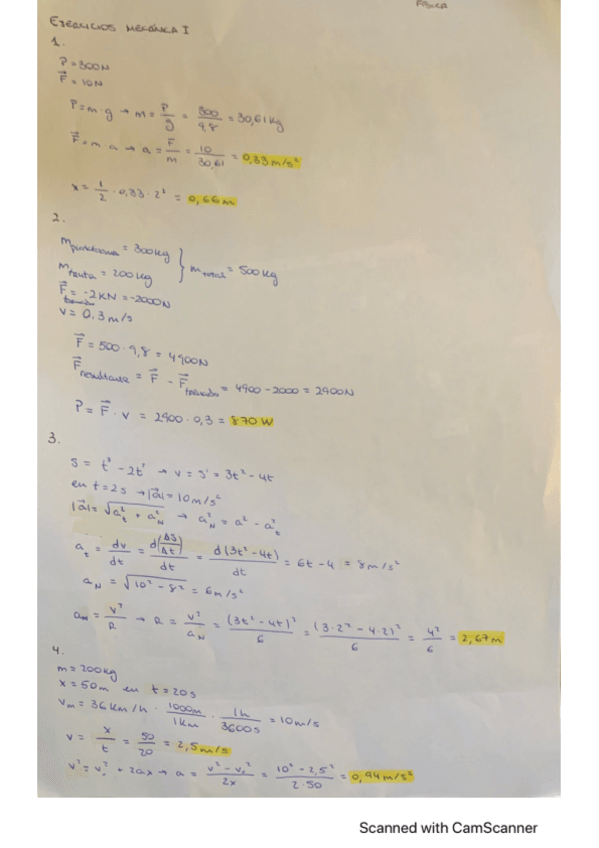 FÍSICA
EJERCICIOS MECÁNICA I
1.
P = 300N
F⃗ = 10N
P = m · g → m = P/g = 300/9,8 = 30,61 kg
F⃗ = m · a → a = F⃗/m = 10/30,61 = 0,33 m/s²
x = 1/2 · 0,33 · 2² = 0,66 m
2.
m = 300 kg
m = 200 kg } m total = 500 kg
F⃗ = -2KN = -2000N
v = 0,3 m/s
F⃗ = 500 · 9,8 = 4900N
F⃗ resultante = F⃗ - F⃗ = 4900 - 2000 = 2900N
P = F⃗ · v = 2900 · 0,3 = 870 W
3.
s = t³ - 2t² → v = s' = 3t² - 4t
en t = 2s → |a⃗| = 10 m/s²
|a⃗| = √(a_t² + a_N²) → a_N² = a² - a_t²
a_t = dv/dt = d(ΔS/Δt)/dt = d(3t² - 4t)/dt = 6t - 4 = 8 m/s²
a_N = √(10² - 8²) = 6 m/s²
a_N = v²/R → R = v²/a_N = (3t² - 4t)²/6 = (3·2² - 4·2)²/6 = 4²/6 = 2,67 m
4.
m = 200 kg
x = 50 m en t = 20 s
v_m = 36 km/h · 1000m/1km · 1h/3600s = 10 m/s
v = x/t = 50/20 = 2,5 m/s
v² = v₀² + 2ax → a = (v² - v₀²)/2x = (10² - 2,5²)/(2·50) = 0,94 m/s²
Scanned with CamScanner